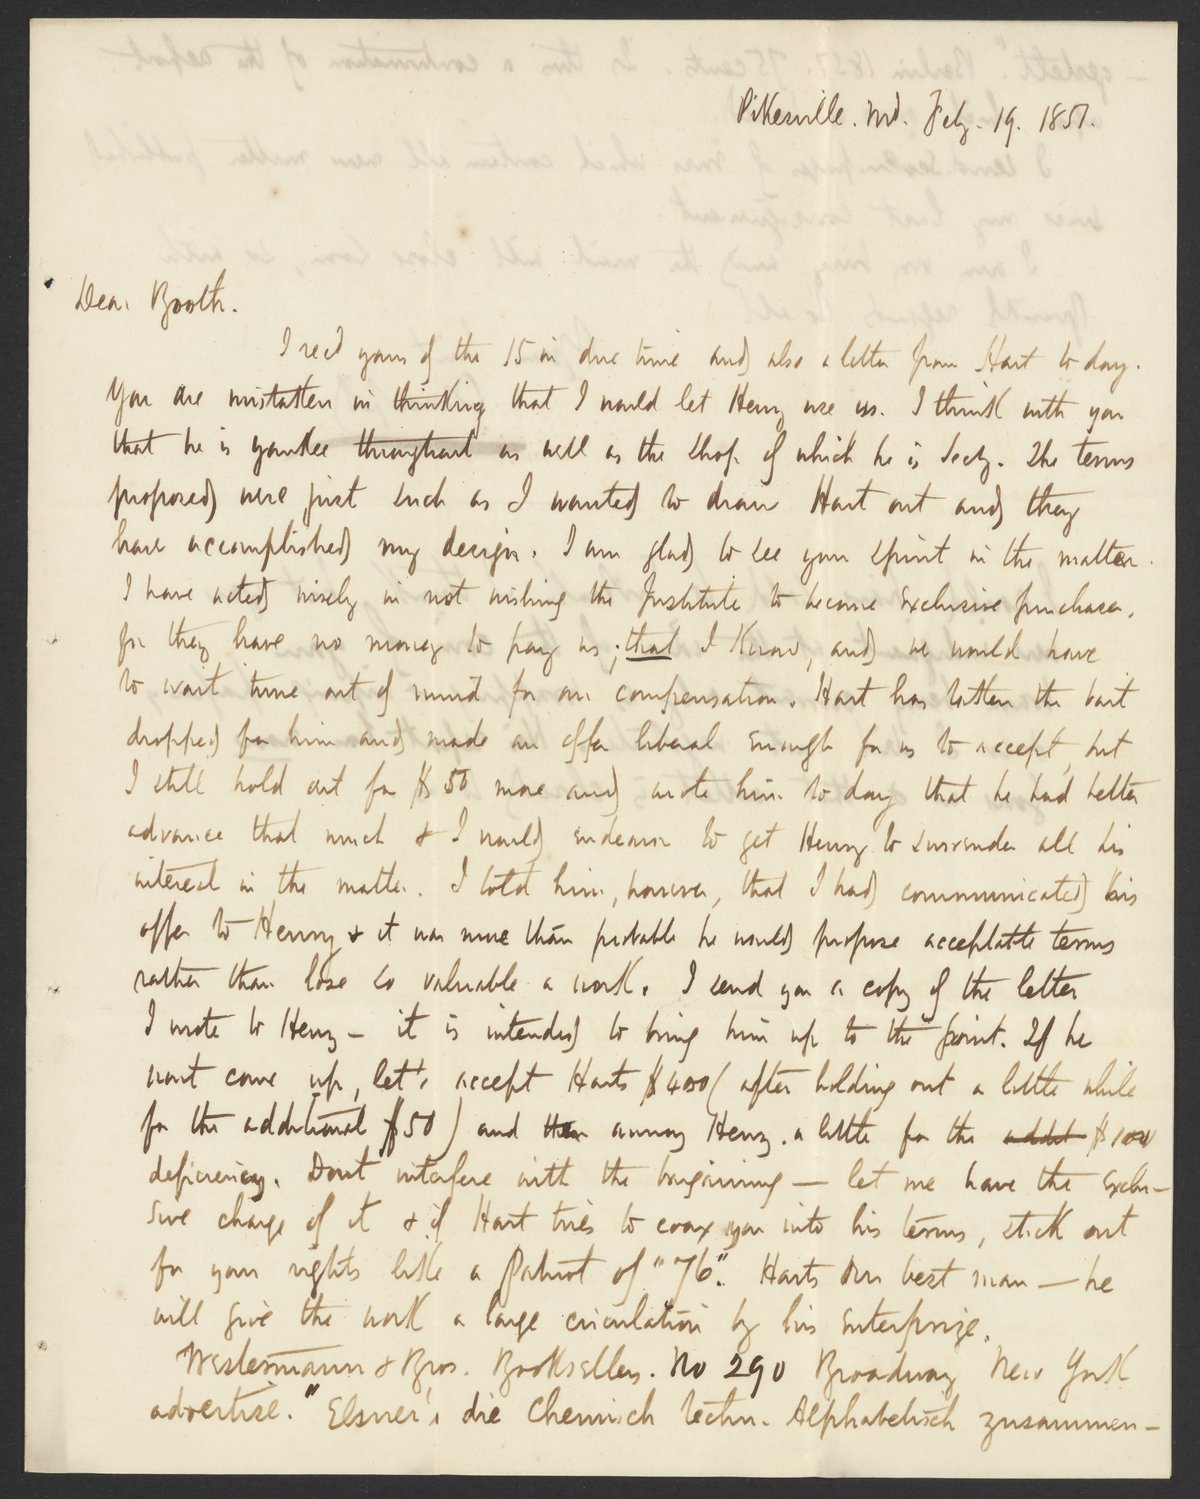 Pikesville. Md. Feby. 19. 1851.
Dear Booth.
I recd yours of the 15 in due time and also a letter from Hart to day.
You are mistaken in thinking that I would let Henry use us. I think with you
that he is yankee throughout as well as the shop of which he is Secty. The terms
proposed were just such as I wanted to draw Hart out and they
have accomplished my design. I am glad to see your spirit in the matter.
I have acted wisely in not wishing the Institute to become exclusive purchaser,
for they have no money to pay us; that I Know, and we would have
to wait time out of mind for our compensation. Hart has bitten the bait
dropped for him and made an offer liberal enough for us to accept, but
I still hold out for $50 more and wrote him to day that he had better
advance that much & I would endeavor to get Henry to surrender all his
interest in the matter. I told him, however, that I had communicated his
offer to Henry & it was more than probable he would propose acceptable terms
rather than lose so valuable a work. I send you a copy of the letter
I wrote to Henry – it is intended to bring him up to the point. If he
wont come up, let's accept Harts $400 (after holding out a little while
for the additional $50) and then annoy Henry a little for the addit $100
deficiency. Dont interfere with the bargaining – let me have the exclu–
sive charge of it & if Hart tries to coax you into his terms, stick out
for your rights like a Patriot of "76". Harts our best man – he
will give the work a large circulation by his enterprize.
Westermann & Bros. Booksellers. No 290 Broadway New York
advertise. "Elsner's die Chemisch techn. Alphabetisch zusammen–